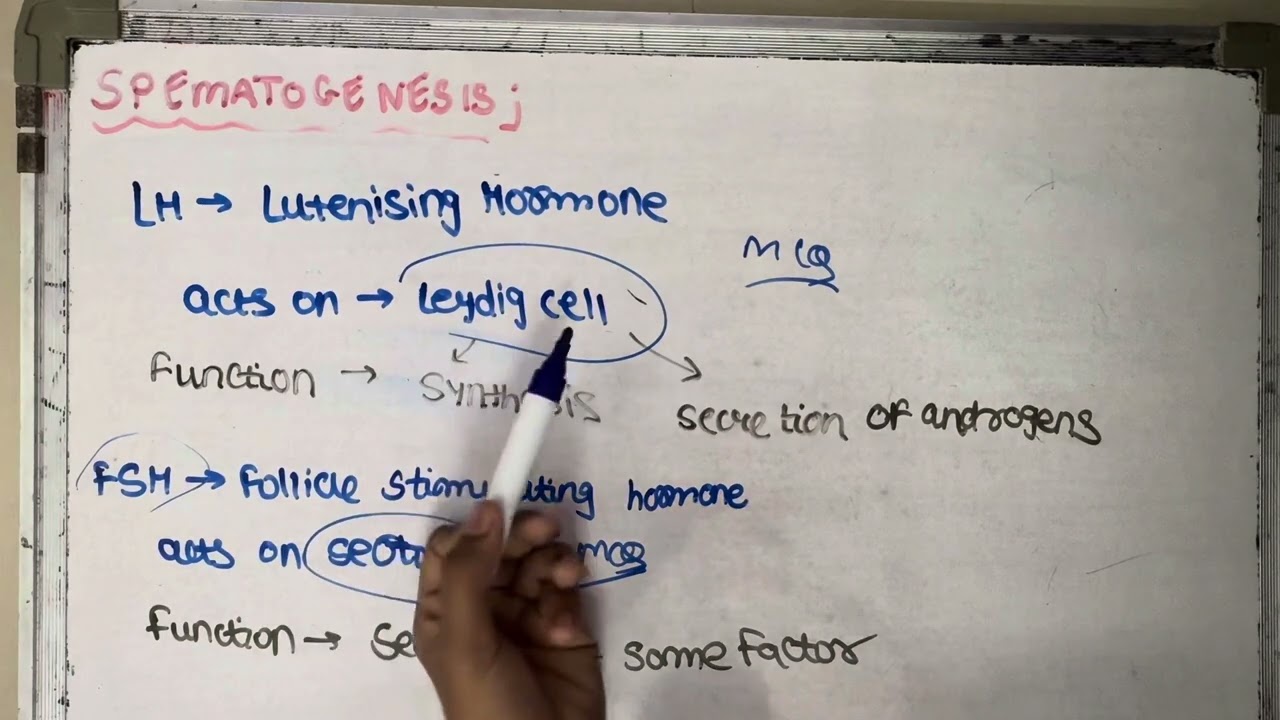 SPEMATOGENESIS;
LH → Lutenising Hormone
MCQ
acts on → leydig cell
Function → Synthesis
secretion of androgens
FSH → Follicle stimulating hormone
acts on MCQ
Function → some factor